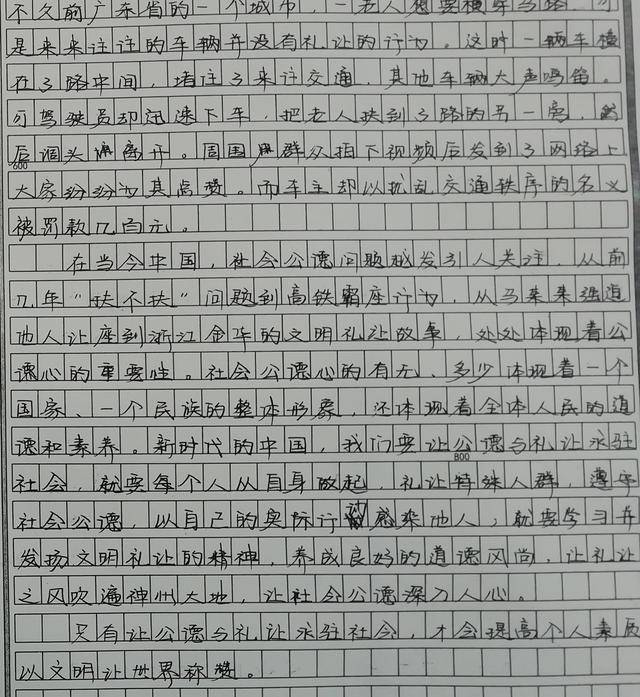 不久前广东省的一个城市，一老人想要横穿马路，可
是来来往往的车辆并没有礼让的行为。这时一辆车横
在了路中间，堵住了来往交通，其他车辆大声鸣笛。
可驾驶员却迅速下车，把老人扶到了路的另一旁，然
后调头离开。周围群众拍下视频后发到了网络上
600
大家纷纷为其点赞。而车主却以扰乱交通秩序的名义
被罚款几百元。
在当今中国，社会公德问题越发引人关注，从前
几年“扶不扶”问题到高铁霸座行为，从马来来强迫
他人让座到浙江金华的文明礼让故事，处处体现着公
德心的重要性。社会公德心的有无、多少体现着一个
国家、一个民族的整体形象，还体现着全体人民的道
德和素养。新时代的中国，我们要让公德与礼让永驻
800
社会，就要每个人从自身做起，礼让特殊人群，遵守
社会公德，以自己的实际行动感染他人，就要学习并
发扬文明礼让的精神，养成良好的道德风尚，让礼让
之风吹遍神州大地，让社会公德深入人心。
只有让公德与礼让永驻社会，才会提高个人素质
以文明让世界称赞。